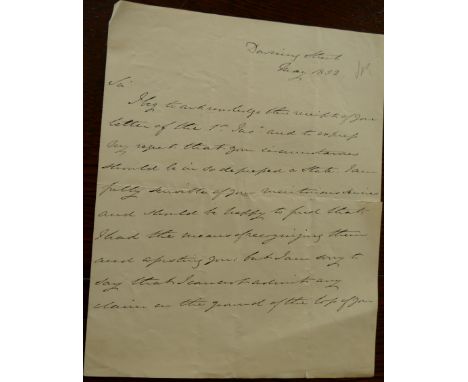 Downing Street
May 1832
Sir
I beg to acknowledge the receipt of your
letter of the 1st Inst and to express
my regret that your circumstances
should be in so depressed a State. I am
fully sensible of your meritorious services
and should be happy to find that
I had the means of recognizing them
and assisting you, but I am sorry to
say that I cannot admit any
claim on the ground of the loss of your